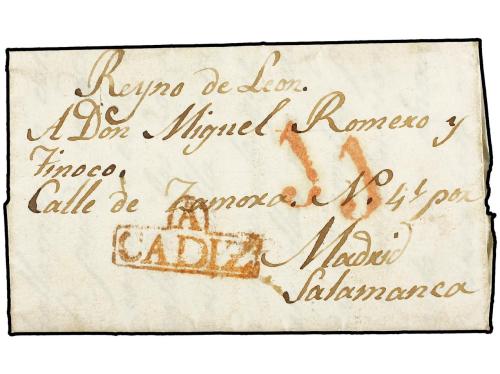 Reyno de Leon.
A Don Miguel Romero y
Tinoco.
Calle de Zamora. Nº. 41 por
11
A
CADIZ
Madrid
Salamanca